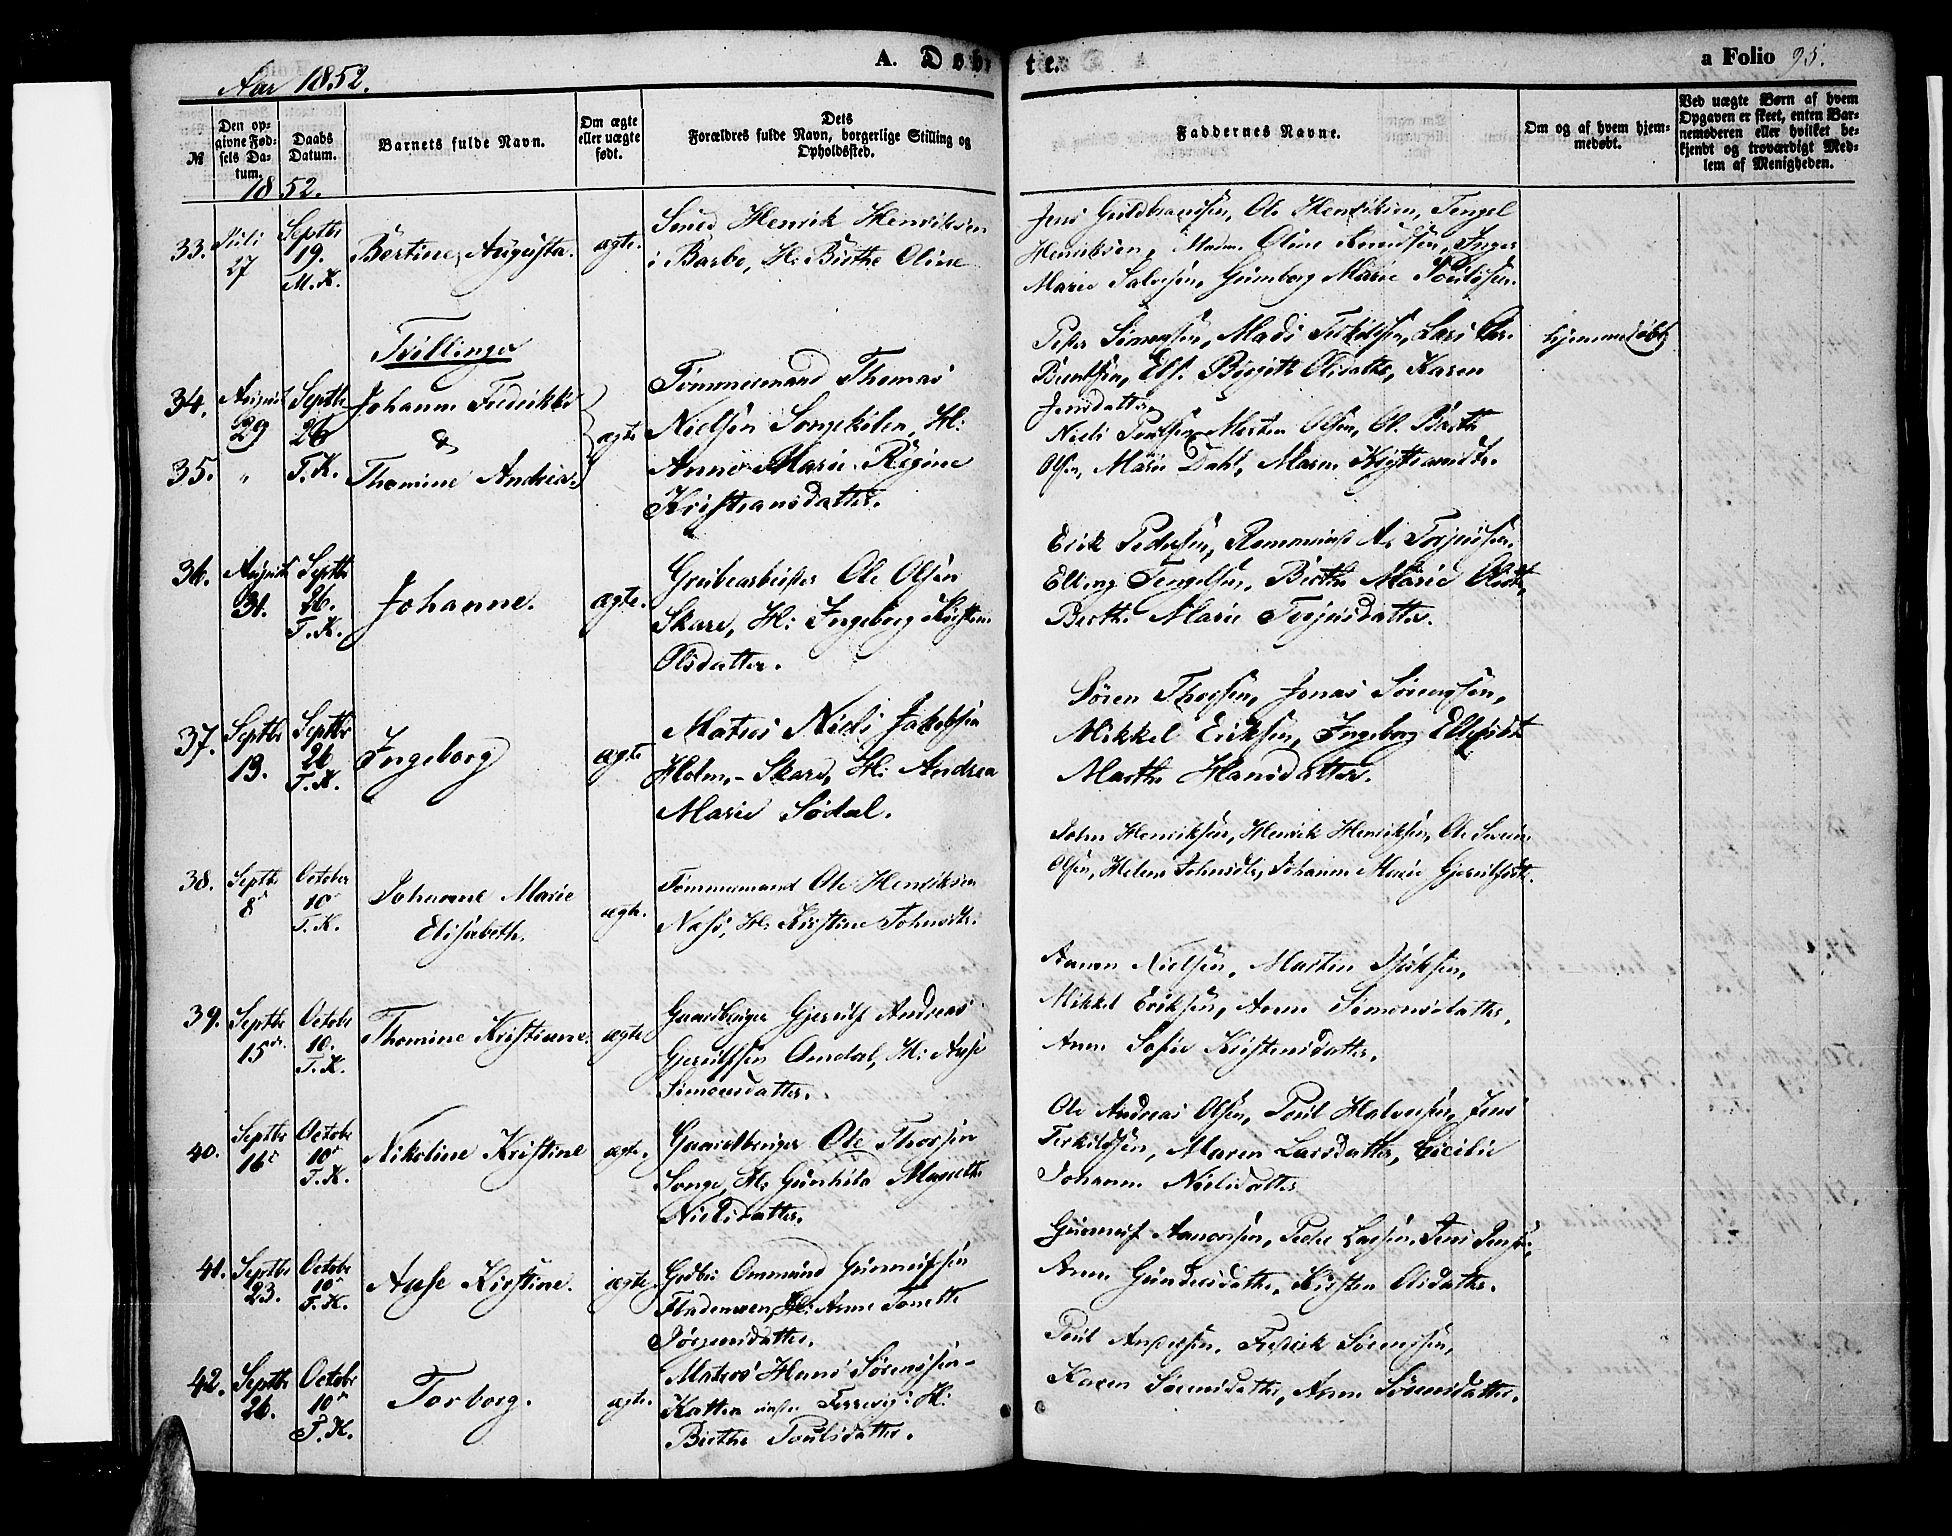 Aar 1852.
A. Døbte.
a Folio 95.
№
Den opgivne Fødsels Datum.
Daabs Datum.
Barnets fulde Navn.
Om ægte eller uægte født.
Dets Forældres fulde Navn, borgerlige Stilling og Opholdssted.
Faddernes Navne.
Om og af hvem hjemmedøbt.
Ved uægte Børn af hvem Opgaven er skeet, enten Barnemoderen eller hvilket bekjendt og troværdigt Medlem af Menigheden.
1852.
33. Juli 27 Septbr 19. M.K. Bertine Augusta. ægte.
Smed Henrik Henriksen
i Barbo, H: Birthe Oline
Ole Henriksen, Tengel
Henriksen, Madm. Oline Knudsen, Inger
Marie Salvesen, Gunborg Marie
Tvillinger
34. August 29 Septbr 26 T.K. Johanne Fredrikke
&
35. " Thomine Andrea. ægte
Tømmermand Thomas
Nielsen Songekilen, H:
Anne Marie Regine
Kristiansdatter.
Peter Simonsen, Mads Terkilsen, Lars
Berntsen, Els. Birgitte Olsdatter, Karen
Jensdatter
Niels Poulsen, Morten Olsen, Ol. Berth
Olsen, Marie Dahl, Maren
hjemmedøbt
36. August 31. Septbr 26. T.K. Johanne. ægte.
Grubearbeider Ole Olsen
Skare, H: Ingeborg Kirstine
Olsdatter.
Erik Pedersen, A. Torjusen,
Elling Tengelsen, Birthe Marie Olsdt,
Berthe Marie Torjusdatter.
37. Septbr 13. Septbr 26 T.K. Ingeborg ægte
Matros Niels Jakobsen
Holm,- Skare, H: Andrea
Marie Sødal.
Søren Thorsen, Jonas Sørensen,
Mikkel Eriksen, Ingeborg Ellefsdt
Marthe Hansdatter.
38. Septbr 8de October 10de T.K. Johanne Marie
Elisabeth. ægte.
Tømmermand Ole Henriksen
Næs, H: Kirstine Johnsdtr.
John Henriksen, Henrik Henriksen, Ole Svein
Olsen, Helene Johnsdtr, Johanne Marie Gjerulfsdt.
39. Septbr 15de. Octobr 10. T.K. Thomine Kristiane. ægte
Gaardbruger Gjerulf Andreas
Gjerulfsen Omdal, H: Aase
Simonsdatter.
Aanon Nielsen, Martin
Mikkel Eriksen, Anne Simonsdatter,
Anne Sofie Kristensdatter.
40. Septbr 16de Octobr 10de T.K. Nikoline Kristine ægte.
Gaardbruger Ole Thorsen
Songe, H: Gunhild Margrethe
Nielsdatter.
Ole Andreas Olsen, Poul Halvorsen, Jens
Terkildsen, Maren Larsdatter, Cecilie
Johanne Nielsdatter
41. Septbr 23. Octobr 10de T.K. Aase Kirstine. ægte
Grdbr. Ommund Gunnulfsen
Flademoen, H: Anne Tonette
Jørgensdatter.
Gunnulf Aanonsen, Peder Larsen, Jens Jensen,
Anne Gundersdatter, Kirsten Olsdatter.
42. Septbr 26. Octobr 10de T.K. Torborg. ægte.
Matros Hans Sørensen
H:
Birthe Poulsdatter.
Poul Andersen, Fredrik Sørensen,
Karen Sørensdatter, Anne Sørensdatter.